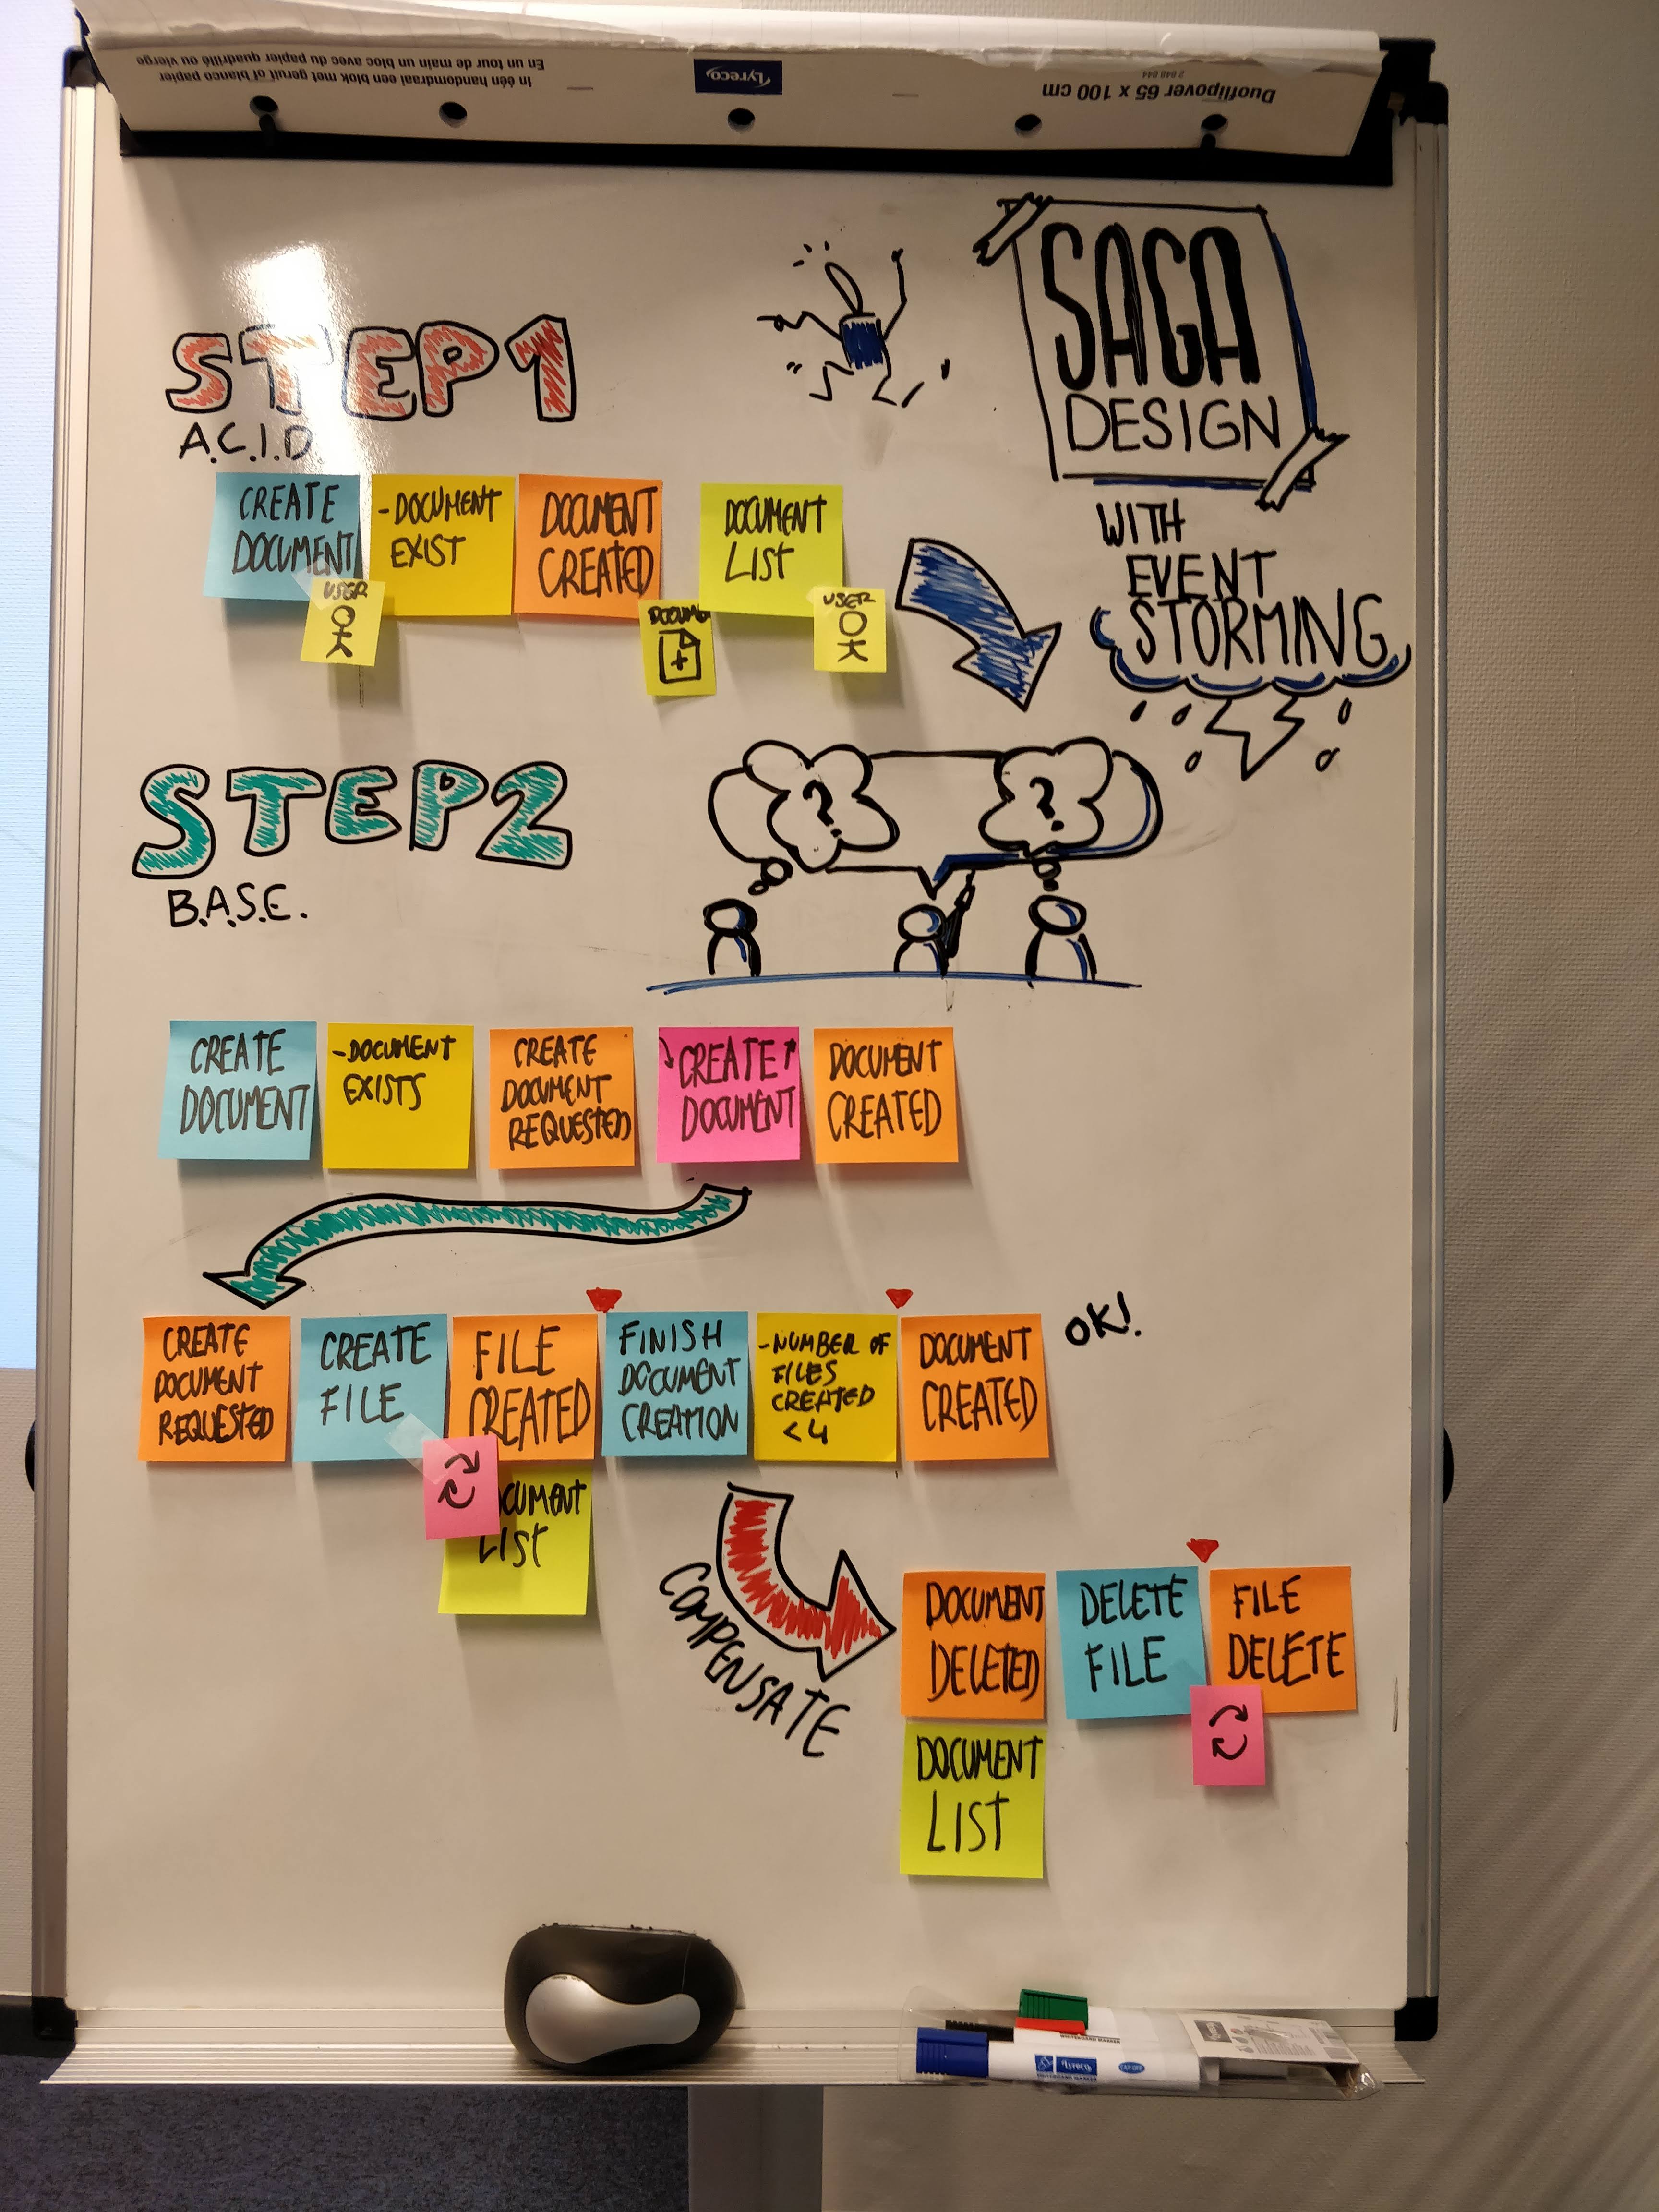 In één handomdraai een blok met geruit of blanco papier
En un tour de main un bloc avec du papier quadrillé ou vierge
Lyreco
Duoflipover 65 x 100 cm
2 848 844
SAGA
DESIGN
WITH
EVENT
STORMING
STEP1
A.C.I.D.
CREATE
DOCUMENT
USER
-DOCUMENT
EXIST
DOCUMENT
CREATED
DOCUMENT
LIST
USER
STEP2
B.A.S.E.
?
?
CREATE
DOCUMENT
-DOCUMENT
EXISTS
CREATE
DOCUMENT
REQUESTED
CREATE
DOCUMENT
DOCUMENT
CREATED
CREATE
DOCUMENT
REQUESTED
CREATE
FILE
FILE
CREATED
CUMENT
LIST
FINISH
DOCUMENT
CREATION
-NUMBER OF
FILES
CREATED
<4
DOCUMENT
CREATED
OK!
COMPENSATE
DOCUMENT
DELETED
DOCUMENT
LIST
DELETE
FILE
FILE
DELETE
Lyreco